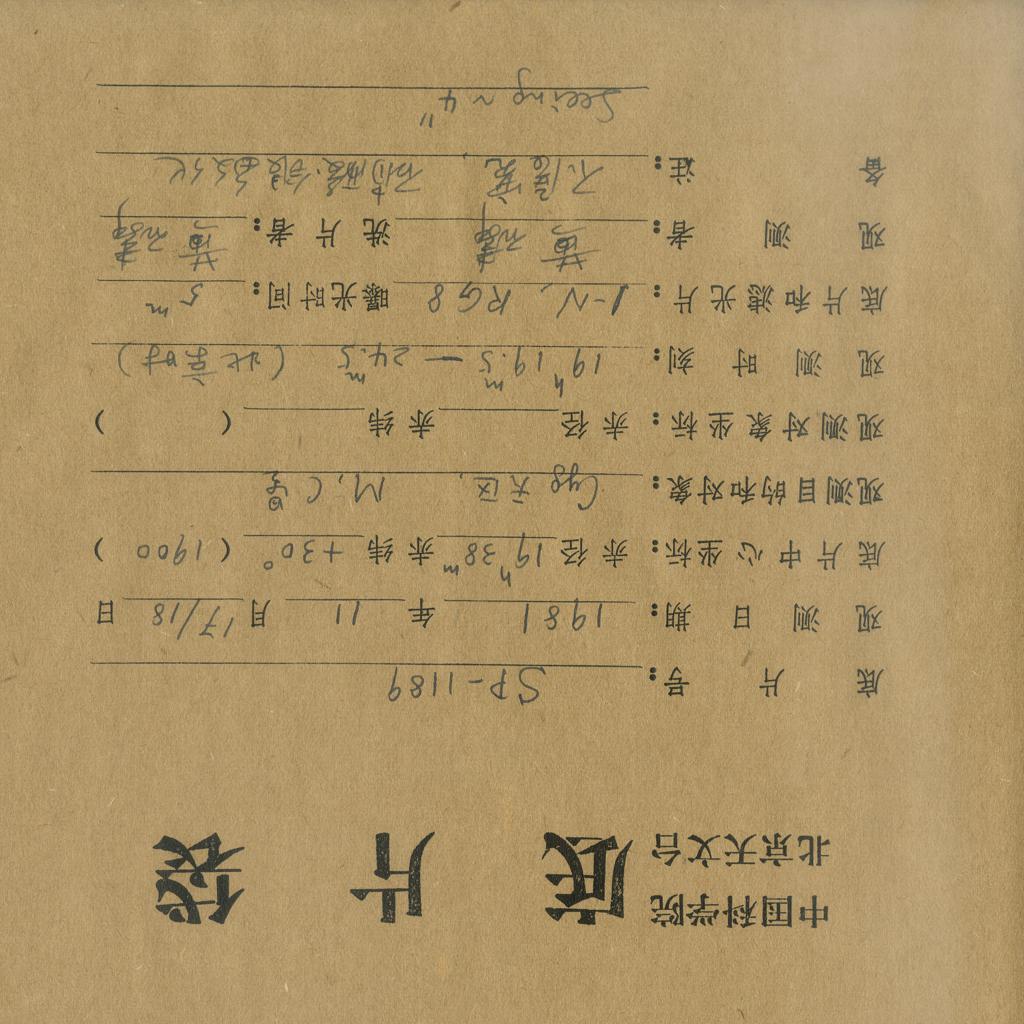 中国科学院
北京天文台
底片袋
底片号: SP-1189
观测日期: 1981年11月17/18日
底片中心坐标: 赤径19h38m赤纬+30°(1900)
观测目的和对象: Cyg天区, M, C星
观测对象坐标: 赤径 赤纬 ( )
观测时刻: 19h19.5m — 24.5m (北京时)
底片和滤光片: 1-N, RG8 曝光时间: 5m
观测者: 黄 洗片者: 黄
备注: 硝酸银敏化
Seeing ~ 4"